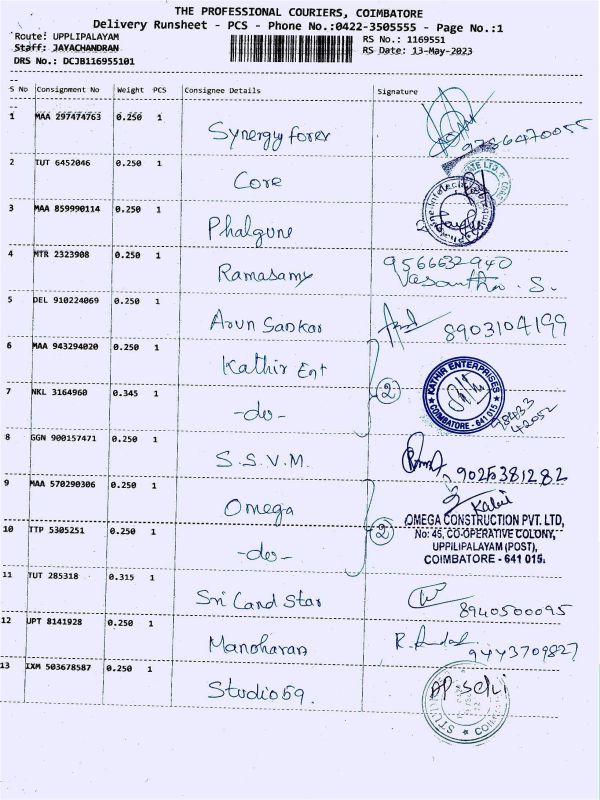 THE PROFESSIONAL COURIERS, COIMBATORE
Delivery Runsheet - PCS - Phone No.:0422-3505555 - Page No.:1
Route: UPPLIPALAYAM RS No.: 1169551
Staff: JAYACHANDRAN RS Date: 13-May-2023
DRS No.: DCJB116955101
S No Consignment No Weight PCS Consignee Details Signature
1 MAA 297474763 0.250 1 Synergy forex
2 TUT 6452046 0.250 1 Core
3 MAA 859990114 0.250 1 Phalgune
4 MTR 2323908 0.250 1 Ramasamy 9566632940
Vasantha. S.
5 DEL 910224069 0.250 1 Arun Sankar 8903104199
6 MAA 943294020 0.250 1 Kathir Ent
KATHIR ENTERPRISES
COIMBATORE - 641 015
7 NKL 3164960 0.345 1 -do- 2 98433
42052
8 GGN 900157471 0.250 1 S.S.V.M. 9025381282
9 MAA 570290306 0.250 1 Omega
OMEGA CONSTRUCTION PVT. LTD,
No: 45, CO-OPERATIVE COLONY,
10 TTP 5305251 0.250 1 -do- 2 UPPILIPALAYAM (POST),
COIMBATORE - 641 015.
11 TUT 285318 0.315 1 Sri Land Star 8940500095
12 UPT 8141928 0.250 1 Manoharan 9443709827
13 IXM 503678587 0.250 1 Studio 59.